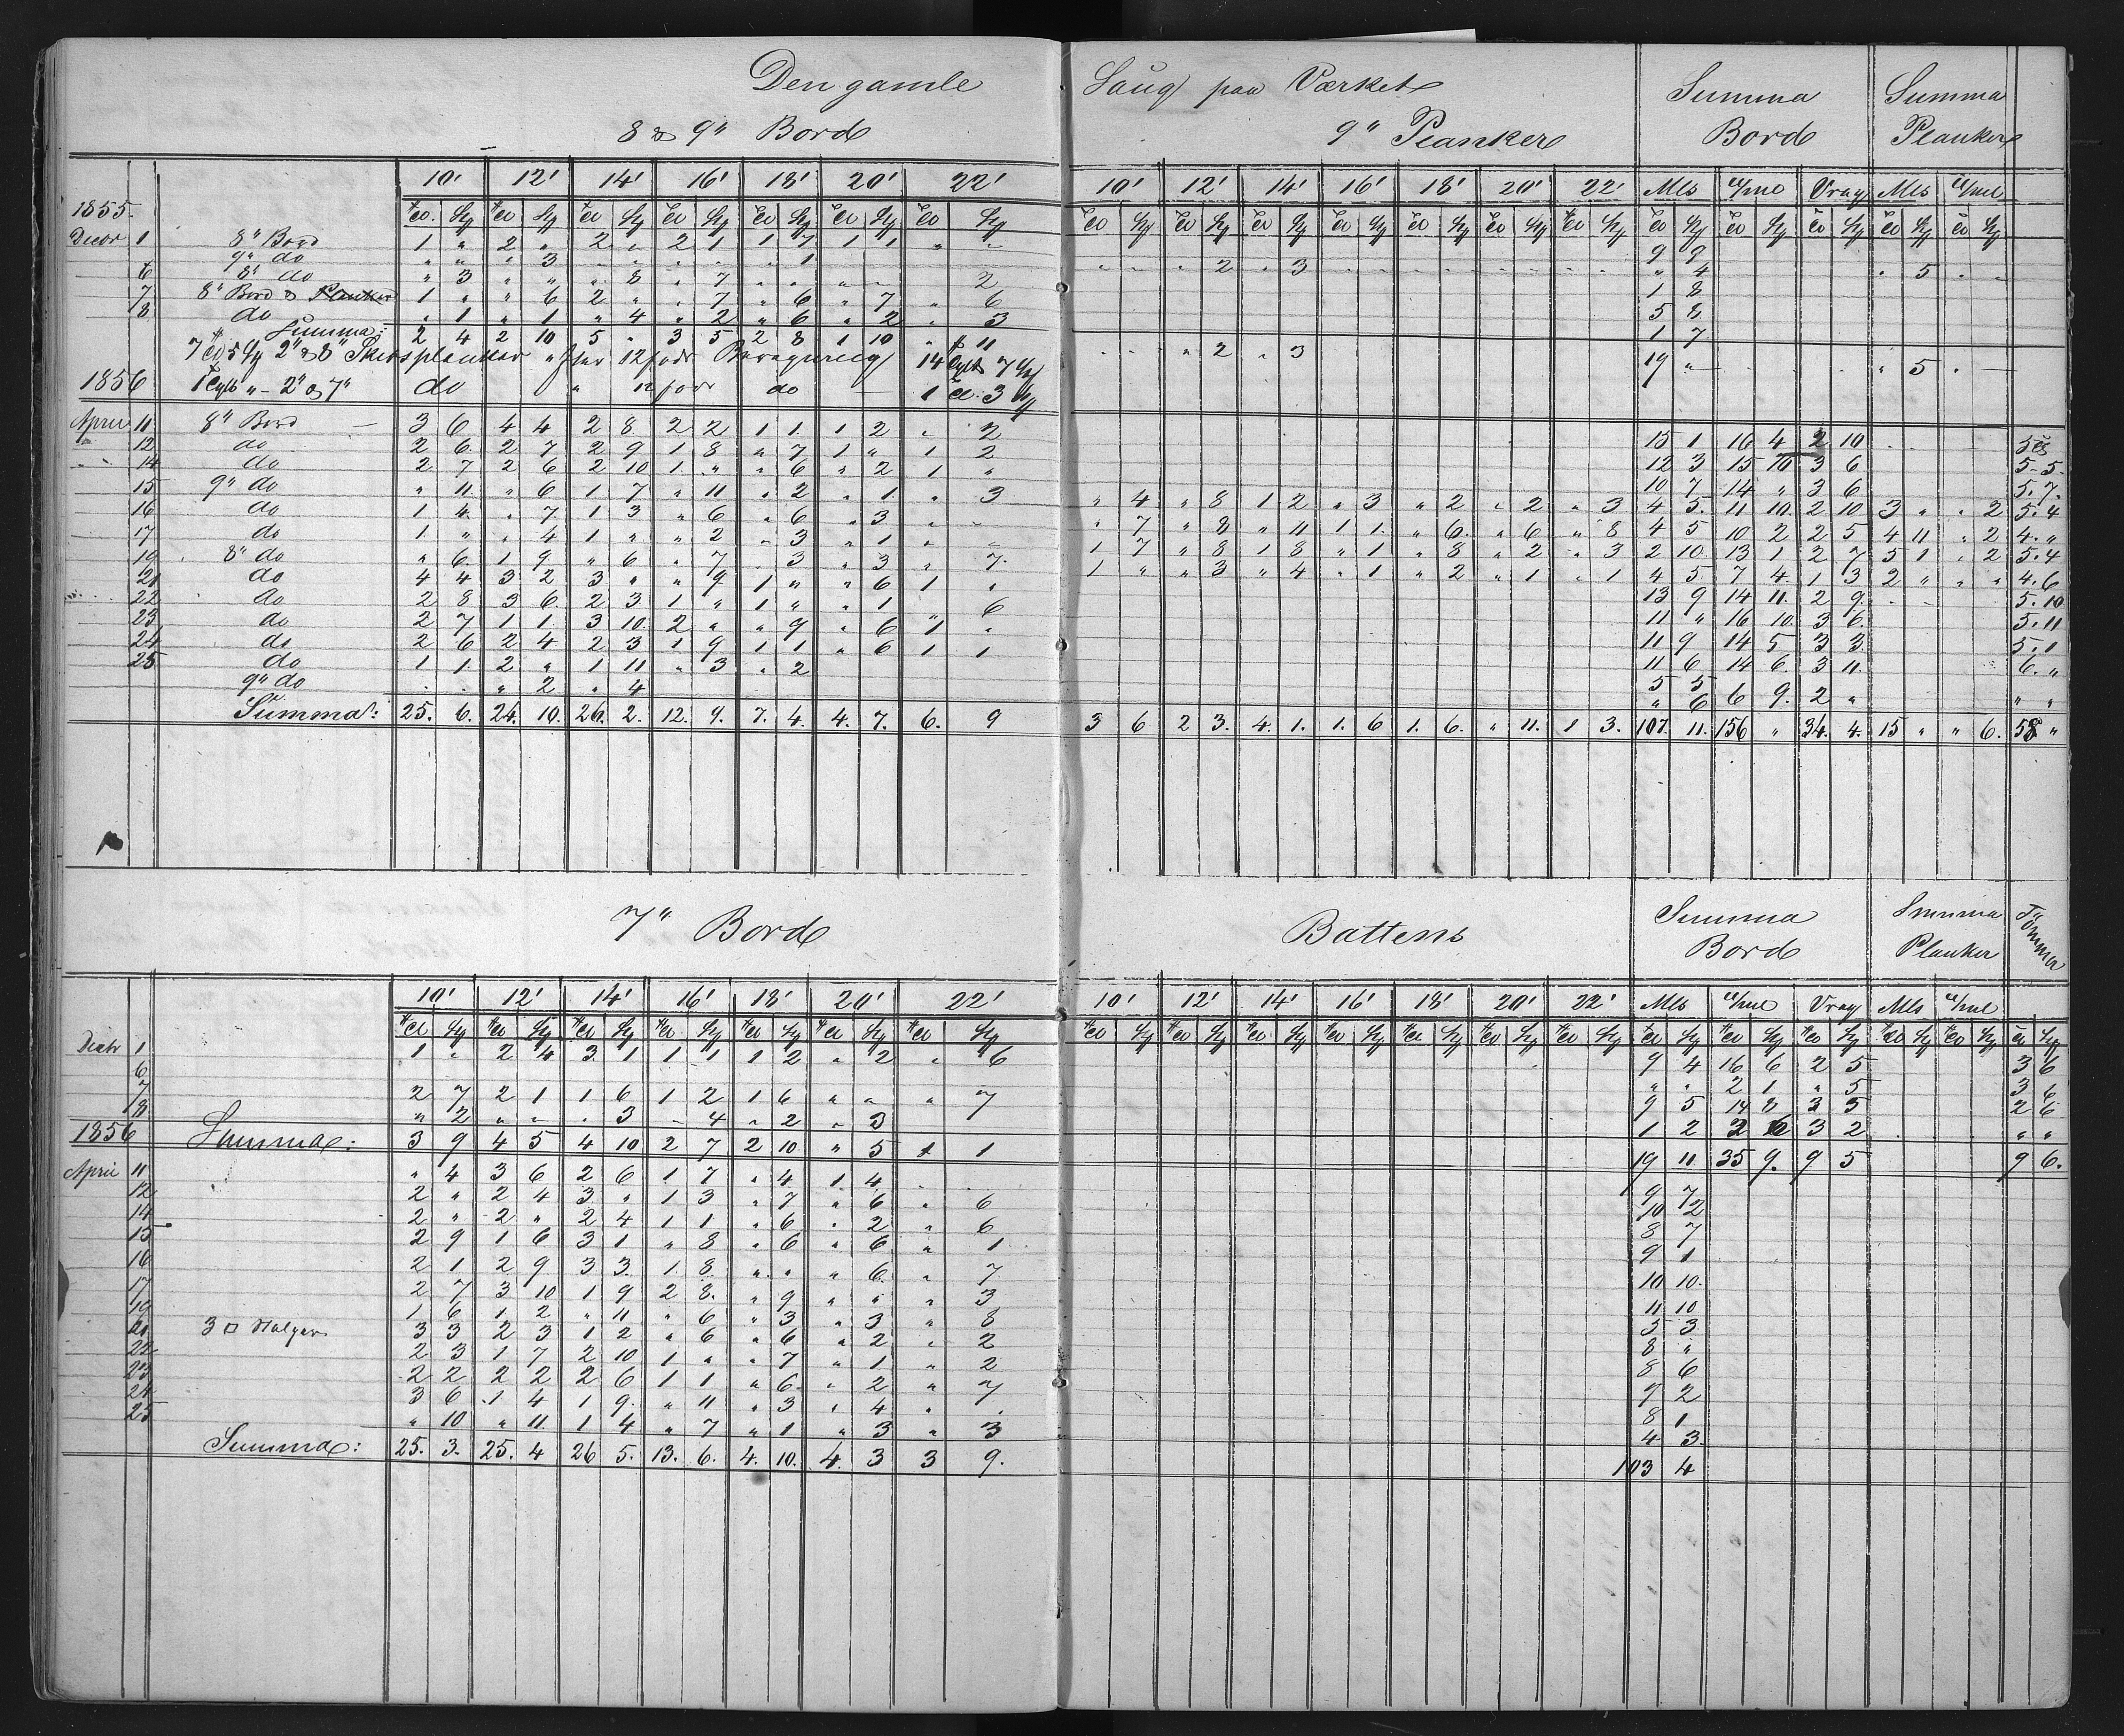 Den gamle Saug paa Værket
8 & 9" Bord 9" Planker Summa Bord Summa Planker
10' 12' 14' 16' 18' 20' 22' 10' 12' 14' 16' 18' 20' 22' Mls Vrag Mls
1855
8" Bord 1 " 2 " 2 " 2 1 1 7 1 1 " " 9 9
9" do " " " 3 " " " " " 1
6 8" do " 3 " " " 8 " 7 " " " " 2
7 8" Bord & Planker 1 " " 6 2 " " 7 " 6 " 7 " 6
8 do " 1 " 1 " 4 " 2 " 6 " 2 " 3
Summa: 2 4 2 10 5 " 3 5 2 8 1 10 " 11
1856 2" & 7" do 12 fods do
April 11 8" Bord 3 6 4 4 2 8 2 2 1 1 1 2 " 2 15 1 16 4 2 10
12 do 2 6 2 7 2 9 1 8 " 7 1 " 1 2 12 3 15 10 3 6 5 5
14 do 2 7 2 6 2 10 1 " " 6 " 2 1 " 10 7 14 " 3 6 5. 7.
15 9" do " 11 " 6 1 7 " 11 " 2 " 1 " 3 " 4 " 8 1 2 " 3 " 2 " 2 " 3 4 5 11 10 2 10 3 " " 2 5. 4
16 do 1 4 " 7 1 3 " 6 " 6 " 3 " " " 7 " 8 " 11 1 1 " 6 " 6 " 8 4 5 10 2 2 5 4 11 " 2 4. "
17 do 1 " " 4 1 " " 2 " 3 " 1 " " 1 7 " 8 1 8 " 1 " 8 " 2 " 3 2 10 13 1 2 7 5 1 " 2 5. 4
19 8" do " 6 1 9 " 6 " 7 " 3 " 3 " 7 1 " " 3 " 4 " 1 " 2 " 1 " 1 4 5 7 4 1 3 2 " " " 4. 6
21 do 4 4 3 2 3 " " 9 1 " " 6 1 " 13 9 14 11 2 9 5. 10
22 do 2 8 3 6 2 3 1 " 1 " " 1 " 6 11 " 16 10 3 6 5. 11
23 do 2 7 1 1 3 10 2 " " 9 " 6 1 " 11 9 14 5 3 3 5. 1
24 do 2 6 2 4 2 3 1 9 1 1 " 6 1 1 11 6 14 6 3 11 6. "
25 do 1 1 2 " 1 11 " 3 " 2 5 5 6 9 2 " " "
9" do " " " 2 " 4 " 6
Summa: 25. 6. 24. 10. 26. 2. 12. 9. 7. 4. 4. 7. 6. 9 3 6 2 3. 4. 1. 1. 6 1. 6. " 11. 1 3. 107. 11. 156 " 34. 4. 15 " " 6. 58 "
7" Bord Battens Summa Bord Summa Planker Tömmer
10' 12' 14' 16' 18' 20' 22' 10' 12' 14' 16' 18' 20' 22' Mls Vrag Mls
1 1 " 2 4 3 1 1 1 1 2 " 2 " 6 9 4 16 6 2 5 3 6
6 " " 2 1 " 5 3 6
7 2 7 2 1 1 6 1 2 1 6 " " " 7 9 5 14 8 3 5 2 6
8 " 2 " " " 3 " 4 " 2 " 3 1 2 3 2 " "
1856 Summa: 3 9 4 5 4 10 2 7 2 10 " 5 1 1 19 11 35 9. 9 5 9 6.
April 11 " 4 3 6 2 6 1 7 " 4 1 4 9 7
12 2 " 2 4 3 " 1 3 " 7 " 6 " 6 10 2
14 2 " 2 " 2 4 1 1 " 6 " 2 " 6 8 7
15 2 9 1 6 3 1 " 8 " 6 " 6 " 1 9 1
16 2 1 2 9 3 3 1 8 " " " 6 " 7 10 10
17 2 7 3 10 1 9 2 8 " 9 " " " 3 11 10
19 1 6 1 2 " 11 " 6 " 3 " 3 " 8 5 3
21 3 3 2 3 1 2 " 6 " 6 " 2 " 2 8 "
22 2 3 1 7 2 10 1 " " 7 " 1 " 2 8 6
23 2 2 2 2 2 6 1 1 " 6 " 2 " 7 9 2
24 3 6 1 4 1 9 " 11 " 3 " 4 " " 8 1
25 " 10 " 11 1 4 " 7 " 1 " 3 " 3 4 3
Summa: 25. 3. 25. 4 26 5. 13. 6. 4. 10. 4. 3 3 9. 103 4